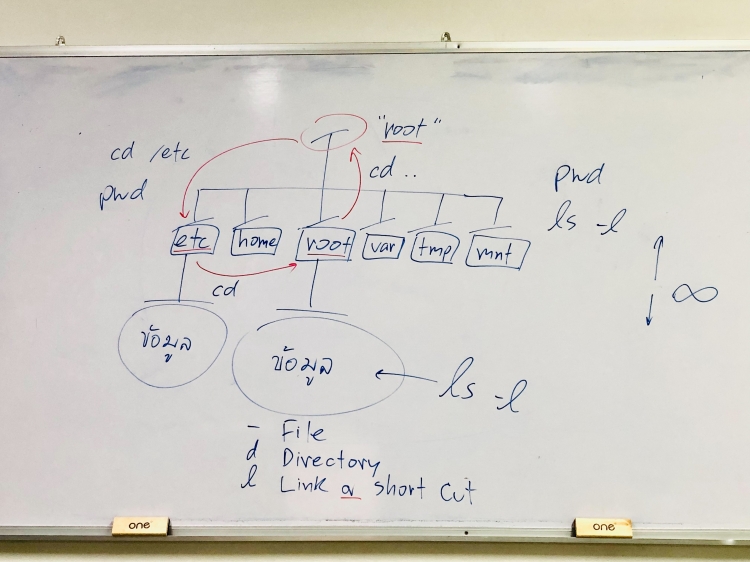 "root"
cd /etc
pwd
cd ..
pwd
ls -l
etc home root var tmp mnt
cd
∞
ข้อมูล
ข้อมูล
ls -l
- File
d Directory
l Link a short cut
one
one